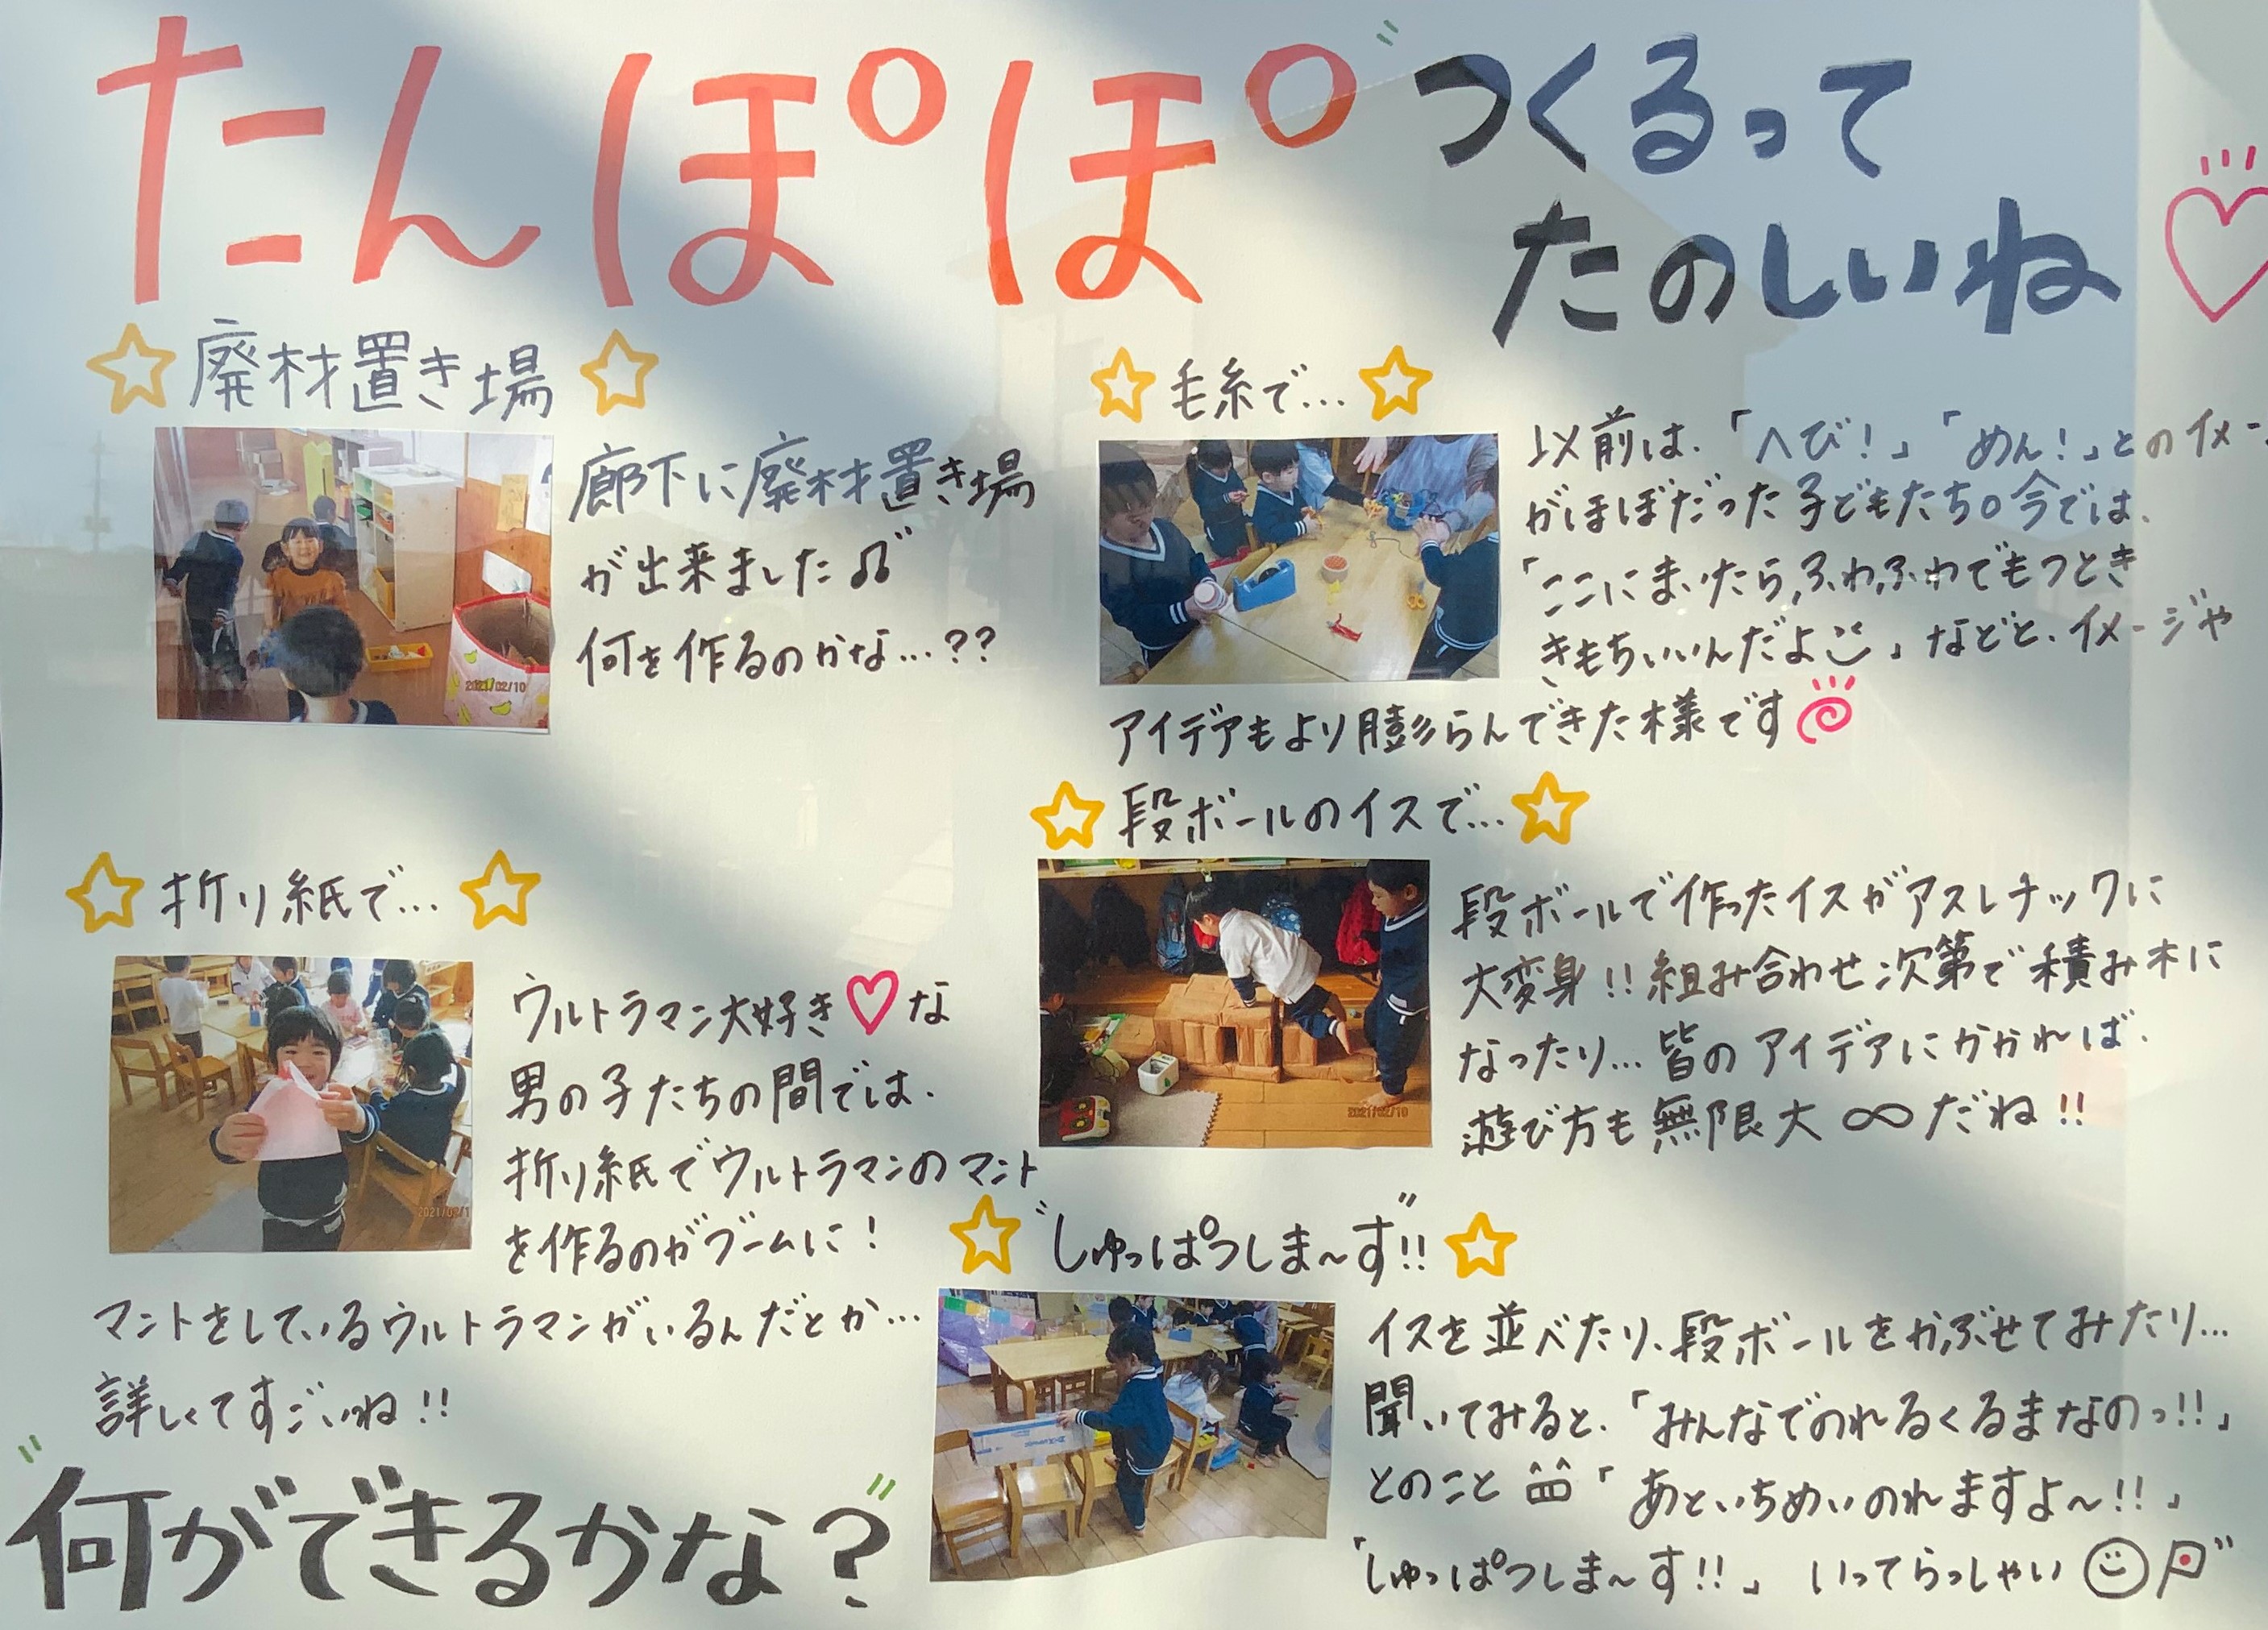 たんぽぽ
つくるって
たのしいね
廃材置き場
2021/02/10
廊下に廃材置き場
が出来ました♫
何を作るのかな…??
毛糸で…
以前は、「へび!」「めん!」とのイメー
がほぼだった子どもたち。今では、
「ここにまいたら、ふわふわでもつとき
きもちいいんだよ」などと、イメージや
アイデアもより膨らんできた様です
折り紙で…
2021/02/1
ウルトラマン大好き♡な
男の子たちの間では、
折り紙でウルトラマンのマント
を作るのがブームに!
マントをしているウルトラマンがいるんだとか…
詳しくてすごいね!!
段ボールのイスで…
2021/02/10
段ボールで作ったイスがアスレチックに
大変身!!組み合わせ次第で積み木に
なったり…皆のアイデアにかかれば、
遊び方も無限大∞だね!!
"しゅっぱつしま〜す"!!
イスを並べたり、段ボールをかぶせてみたり…
聞いてみると、「みんなでのれるくるまなのっ!!」
とのこと「あといちめいのれますよ〜!!」
「しゅっぱつしま〜す!!」いってらっしゃい
何ができるかな?